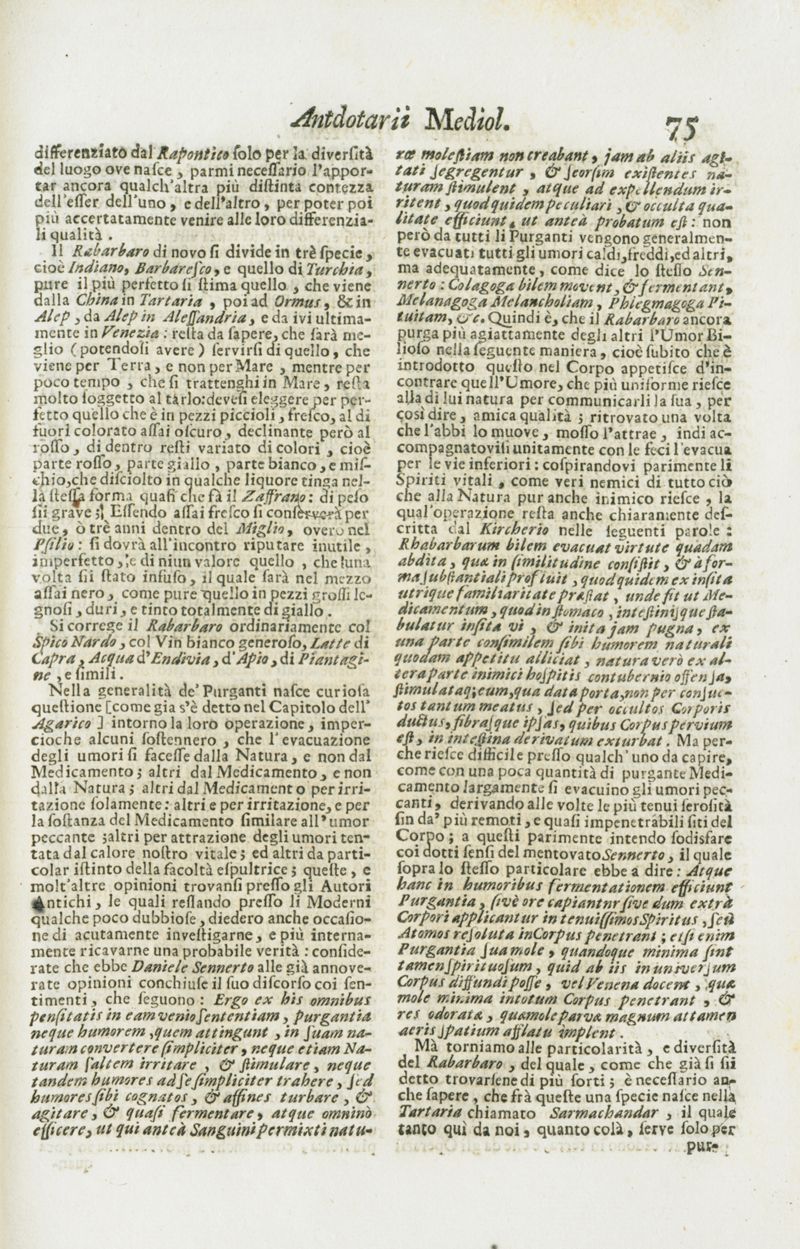 Antdotarii Mediol.
75
differenziato dal Rapontico ſolo per la diverſità
del luogo ove naſce, parmi neceſſario l'appor-
tar ancora qualch'altra più diſtinta contezza
dell'eſſer dell'uno, e dell'altro, per poter poi
più accertatamente venire alle loro differenzia-
li qualità.
Il Rabarbaro di novo ſi divide in trè ſpecie,
cioè Indiano, Barbareſco, e quello di Turchia,
pure il più perfetto ſi ſtima quello, che viene
dalla China in Tartaria, poi ad Ormus, & in
Alep, da Alep in Aleſſandria, e da ivi ultima-
mente in Venezia: reſta da ſapere, che ſarà me-
glio (potendoſi avere) ſervirſi di quello, che
viene per Terra, e non per Mare, mentre per
poco tempo, che ſi trattenghi in Mare, reſta
molto ſoggetto al tarlo: deveſi eleggere per per-
fetto quello che è in pezzi piccioli, freſco, al di
fuori colorato aſſai oſcuro, declinante però al
roſſo, di dentro reſti variato di colori, cioè
parte roſſo, parte giallo, parte bianco, e miſ-
chio, che diſciolto in qualche liquore tinga nel-
la ſteſſa forma quaſi che fà il Zaffrano: di peſo
ſii grave; Eſſendo aſſai freſco ſi conſerverà per
due, ò trè anni dentro del Miglio, overo nel
Pſilio: ſi dovrà all'incontro riputare inutile,
imperfetto, e di niun valore quello, che una
volta ſii ſtato infuſo, il quale ſarà nel mezzo
aſſai nero, come pure quello in pezzi groſſi le-
gnoſi, duri, e tinto totalmente di giallo.
Si correge il Rabarbaro ordinariamente col
Spico Nardo, col Vin bianco generoſo, Latte di
Capra, Acqua d'Endivia, d'Apio, di Piantagi-
ne, e ſimili.
Nella generalità de' Purganti naſce curioſa
queſtione [come gia s'è detto nel Capitolo dell'
Agarico] intorno la loro operazione, imper-
cioche alcuni ſoſtennero, che l'evacuazione
degli umori ſi faceſſe dalla Natura, e non dal
Medicamento; altri dal Medicamento, e non
dalla Natura; altri dal Medicamento per irri-
tazione ſolamente: altri e per irritazione, e per
la ſoſtanza del Medicamento ſimilare all'umor
peccante; altri per attrazione degli umori ten-
tata dal calore noſtro vitale; ed altri da parti-
colar iſtinto della facoltà eſpultrice; queſte, e
molt'altre opinioni trovanſi preſſo gli Autori
Antichi, le quali reſtando preſſo li Moderni
qualche poco dubbioſe, diedero anche occaſio-
ne di acutamente inveſtigarne, e più interna-
mente ricavarne una probabile verità: conſide-
rate che ebbe Daniele Sennerto alle già annove-
rate opinioni conchiuſe il ſuo diſcorſo coi ſen-
timenti, che ſeguono: Ergo ex his omnibus
penſitatis in eam venio ſententiam, purgantia
neque humorem, quem attingunt, in ſuam na-
turam convertere ſimpliciter, neque etiam Na-
turam ſaltem irritare, & ſtimulare, neque
tandem humores ad ſe ſimpliciter trahere, ſed
humores ſibi cognatos, & affines turbare, &
agitare, & quaſi fermentare, atque omninò
efficere, ut qui anteà Sanguini permixti natu-
ræ moleſtiam non creabant, jam ab aliis agi-
tati ſegregentur, & ſeorſim exiſtentes na-
turam ſtimulent, atque ad expellendum ir-
ritent, quod quidem peculiari, & occulta qua-
litate efficiunt, ut anteà probatum eſt: non
però da tutti li Purganti vengono generalmen-
te evacuati tutti gli umori caldi, freddi, ed altri,
ma adequatamente, come dice lo ſteſſo Sen-
nerto: Colagoga bilem movent, & fermentant,
Melanagoga Melancholiam, Phlegmagoga Pi-
tuitam, &c. Quindi è, che il Rabarbaro ancora
purga più agiattamente degli altri l'Umor Bi-
lioſo nella ſeguente maniera, cioè ſubito che è
introdotto queſto nel Corpo appetiſce d'in-
contrare quell'Umore, che più uniforme rieſce
alla di lui natura per communicarli la ſua, per
così dire, amica qualità; ritrovato una volta
che l'abbi lo muove, moſſo l'attrae, indi ac-
compagnatoviſi unitamente con le feci l'evacua
per le vie inferiori: coſpirandovi parimente li
Spiriti vitali, come veri nemici di tutto ciò
che alla Natura pur anche inimico rieſce, la
qual'operazione reſta anche chiaramente deſ-
critta dal Kircherio nelle ſeguenti parole:
Rhabarbarum bilem evacuat virtute quadam
abdita, quæ in ſimilitudine conſiſtit, & à for-
ma ſubſtantiali profluit, quod quidem ex inſita
utrique familiaritate præſtat, unde fit ut Me-
dicamentum, quod in ſtomaco, inteſtiniſque ſta-
bulatur inſita vi, & inita jam pugna, ex
una parte conſimilem ſibi humorem naturali
quodam appetitu alliciat, natura verò ex al-
tera parte inimici hoſpitis contubernio offenſa,
ſtimulataq; eum, qua data porta, non per conſue-
tos tantum meatus, ſed per occultos Corporis
ductus, fibraſque ipſas, quibus Corpus pervium
eſt, in inteſtina derivatum exturbat. Ma per-
che rieſce difficile preſſo qualch'uno da capire,
come con una poca quantità di purgante Medi-
camento largamente ſi evacuino gli umori pec-
canti, derivando alle volte le più tenui ſeroſità
fin da' più remoti, e quaſi impenetrabili ſiti del
Corpo; a queſti parimente intendo ſodisfare
coi dotti ſenſi del mentovato Sennerto, il quale
ſopra lo ſteſſo particolare ebbe a dire: Atque
hanc in humoribus fermentationem efficiunt
Purgantia, ſivè ore capiantnr ſive dum extrà
Corpori applicantur in tenuiſſimos Spiritus, ſeù
Atomos reſoluta in Corpus penetrant; etſi enim
Purgantia ſua mole, quandoque minima ſint
tamen ſpirituoſum, quid ab iis in univerſum
Corpus diffundi poſſe, vel Venena docent, quæ
mole minima in totum Corpus penetrant, &
res odorata, quæ mole parva magnum attamen
aeris ſpatium afflatu implent.
Mà torniamo alle particolarità, e diverſità
del Rabarbaro, del quale, come che già ſi ſii
detto trovarſene di più ſorti; è neceſſario an-
che ſapere, che frà queſte una ſpecie naſce nella
Tartaria chiamato Sarmachandar, il quale
tanto quì da noi, quanto colà, ſerve ſolo per
pure